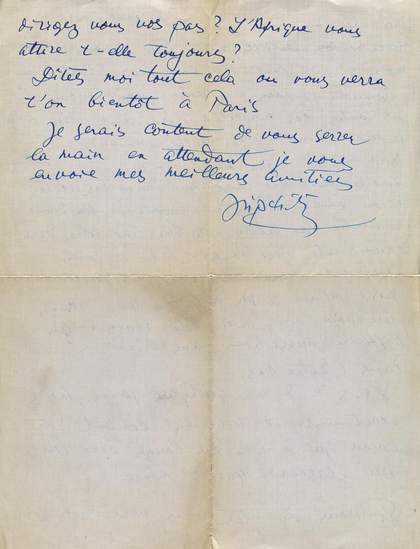 dirigez vous vos pas? L'Afrique vous
attire t-elle toujours?
Dites moi tout cela ou vous verra
t'on bientôt à Paris
Je serais content de vous serrer
la main en attendant je vous
envoie mes meilleurs amitiés
Lipchitz